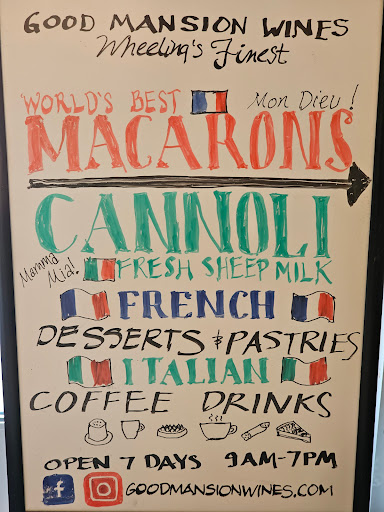 GOOD MANSION WINES
Wheeling's Finest
WORLD'S BEST
Mon Dieu!
MACARONS
CANNOLI
Mamma Mia!
FRESH SHEEP MILK
FRENCH
DESSERTS & PASTRIES
ITALIAN
COFFEE DRINKS
OPEN 7 DAYS 9AM-7PM
GOODMANSIONWINES.COM